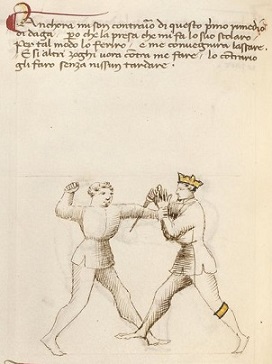 Anchora mi son contrario di questo primo rimedio
di daga, po che la presa che mi fa lo suo scolaro
per tal modo lo feriro, e me convegnera lassare.
E si altri zoghi vora contra me fare, lo contrario
gli faro senza nissun tardare.